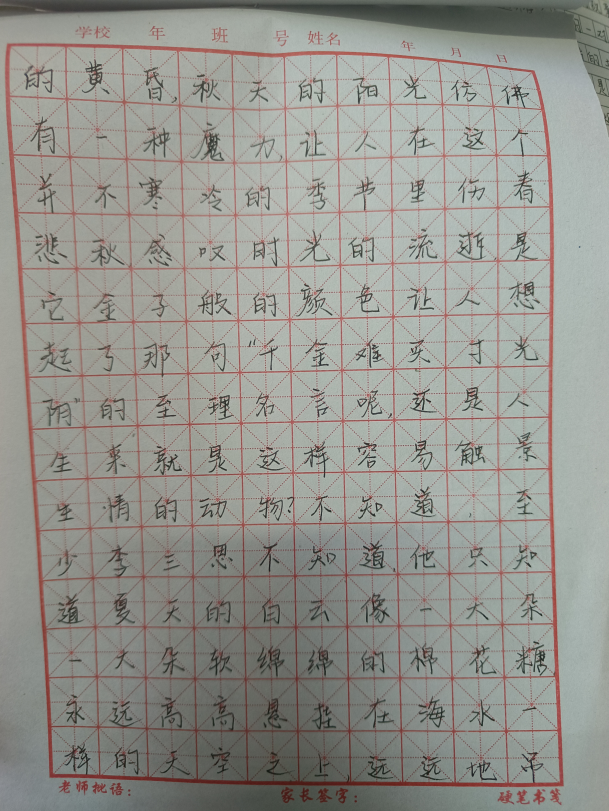 学校 年 班 号 姓名 年 月 日
的黄昏,秋天的阳光仿佛
有一种魔力,让人在这个
并不寒冷的季节里伤春
悲秋感叹时光的流逝是
它金子般的颜色让人想
起了那句“千金难买寸光
阴”的至理名言呢,还是人
生来就是这样容易触景
生情的动物?不知道,至
少李三思不知道,他只知
道夏天的白云像一大朵
一大朵软绵绵的棉花糖,
永远高高悬挂在海水一
样的天空之上,远远地吊
老师批语: 家长签字: 硬笔书笺